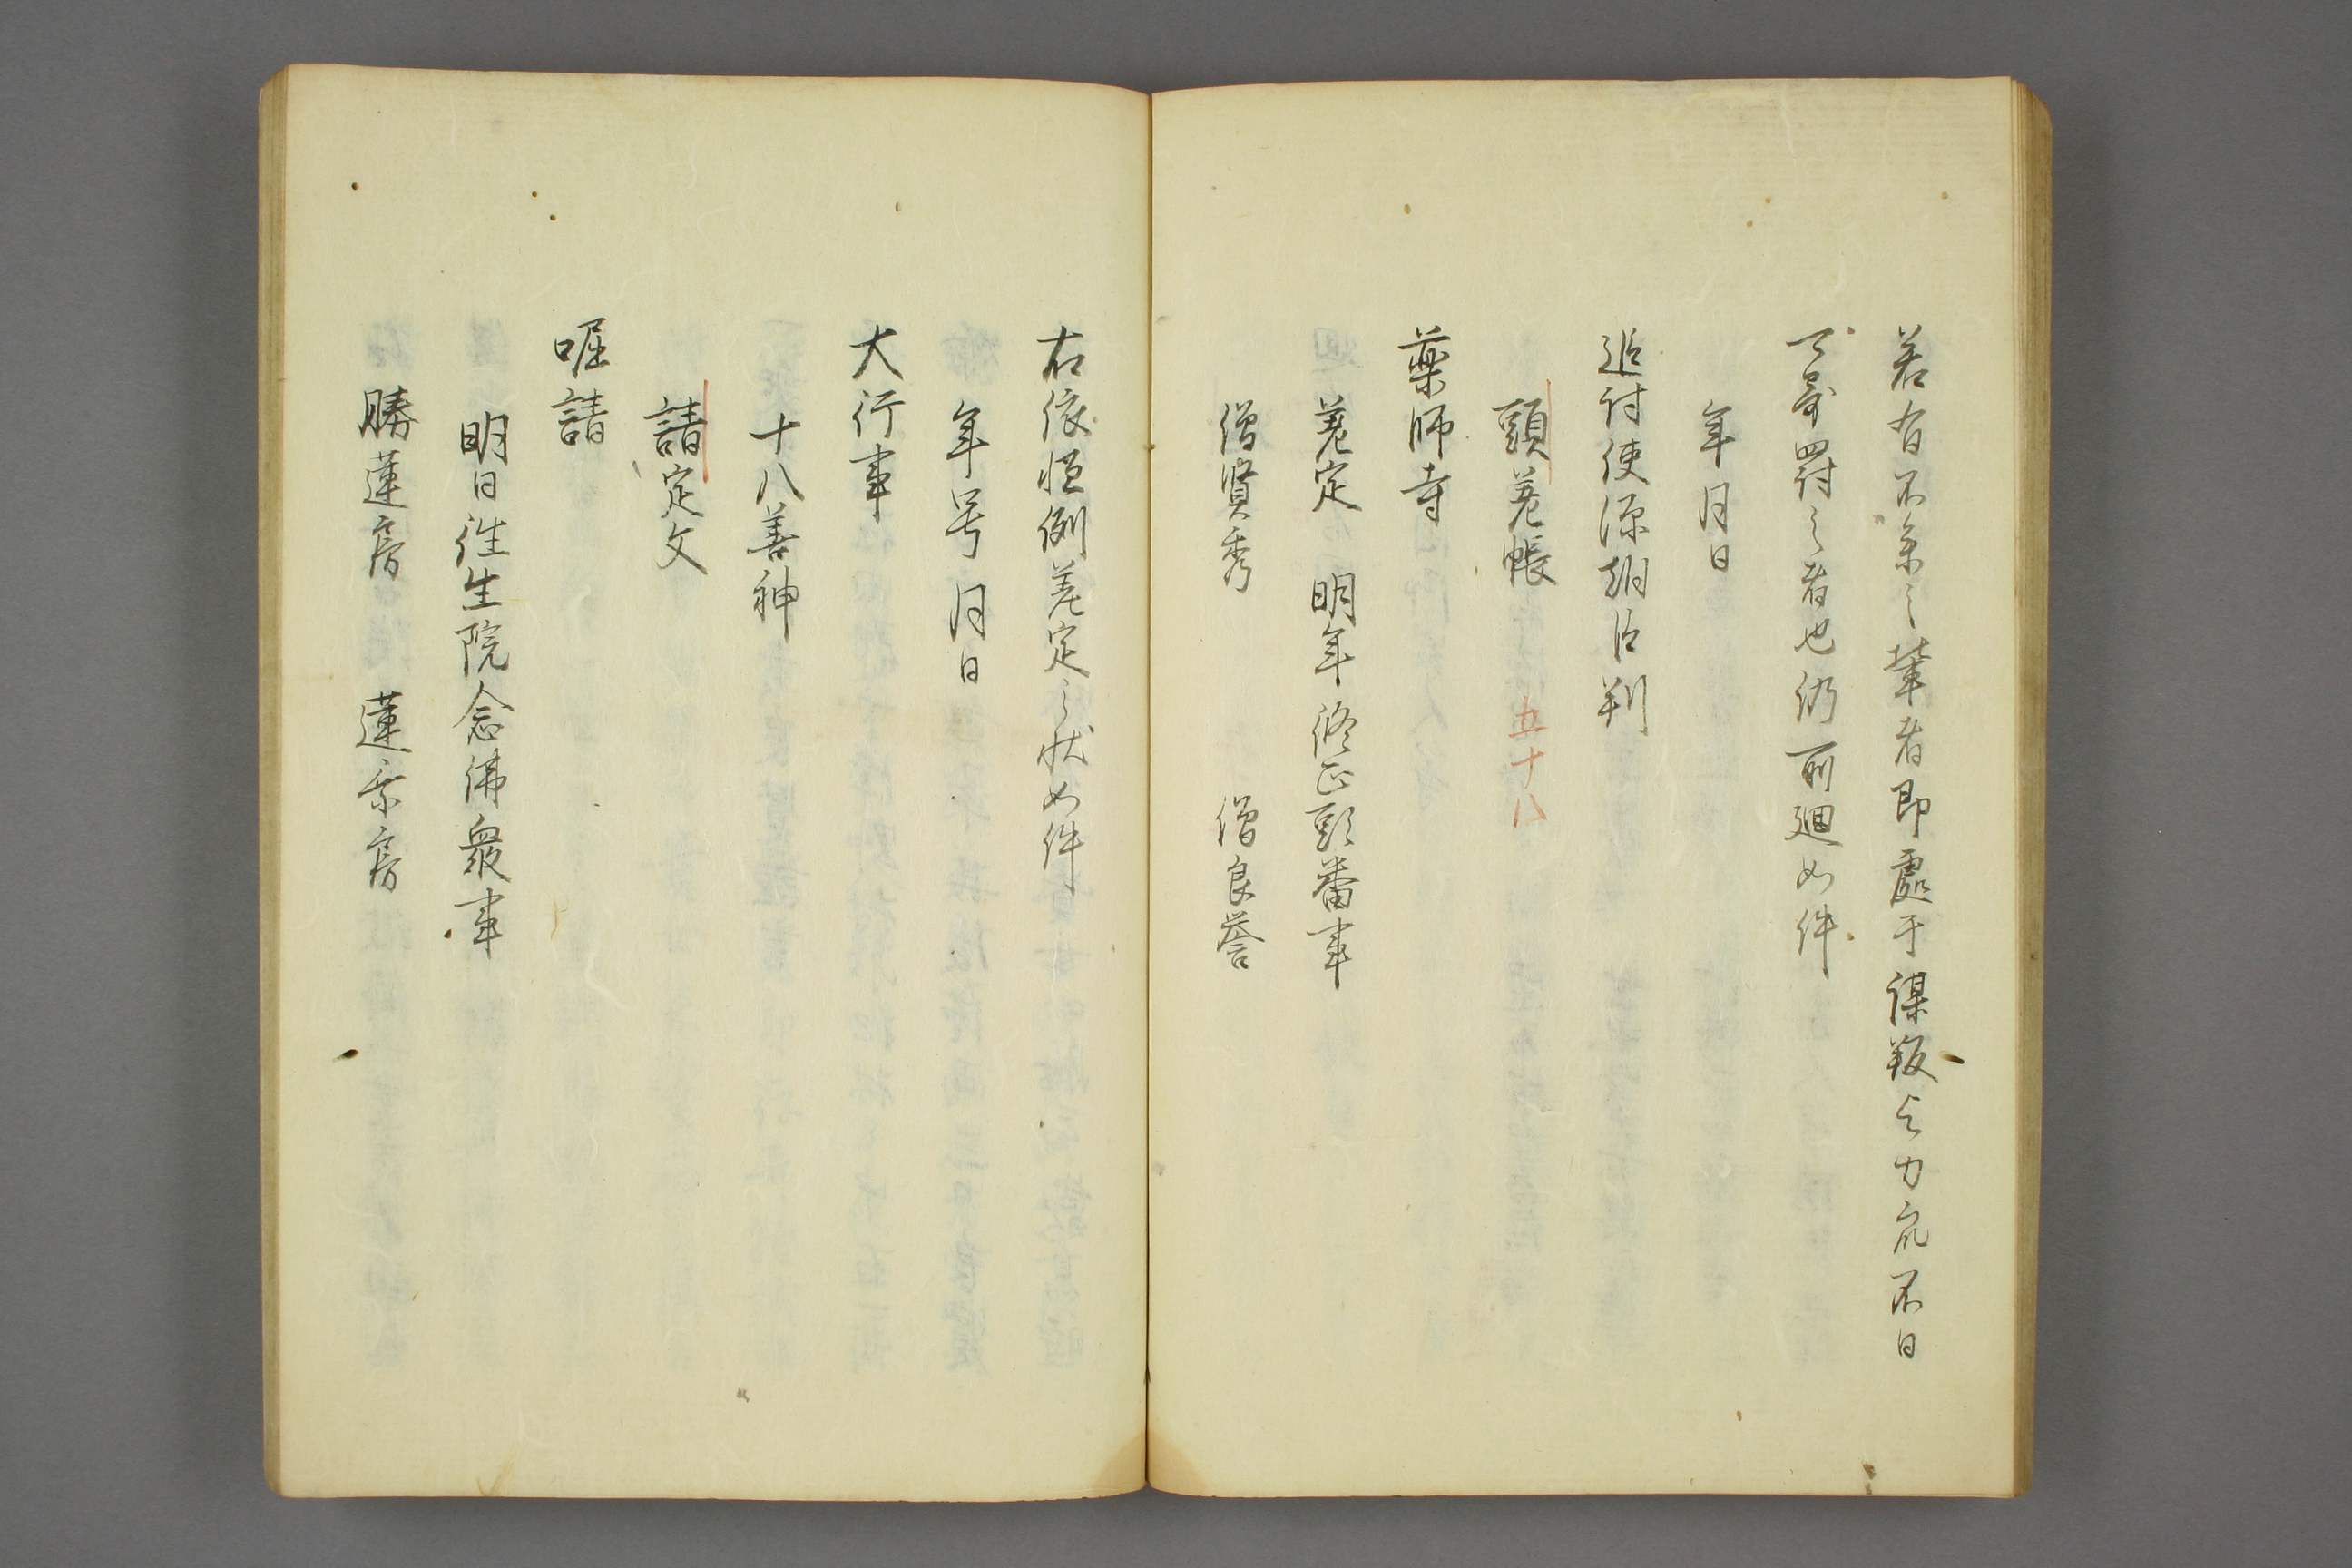 若有不参之輩者即處于謀叛与力宛不日
可・罸之者也仍所廻如件
年月日
追討使源朝臣判
頭差帳 五十八
藥師寺
差定 明年修正頭番事
僧賢秀 僧良誉
右依恒例差定之状如件
年号月日
大行事
十八善神
請定文
啒請
明日往生院念佛衆事
勝蓮房 蓮乘房